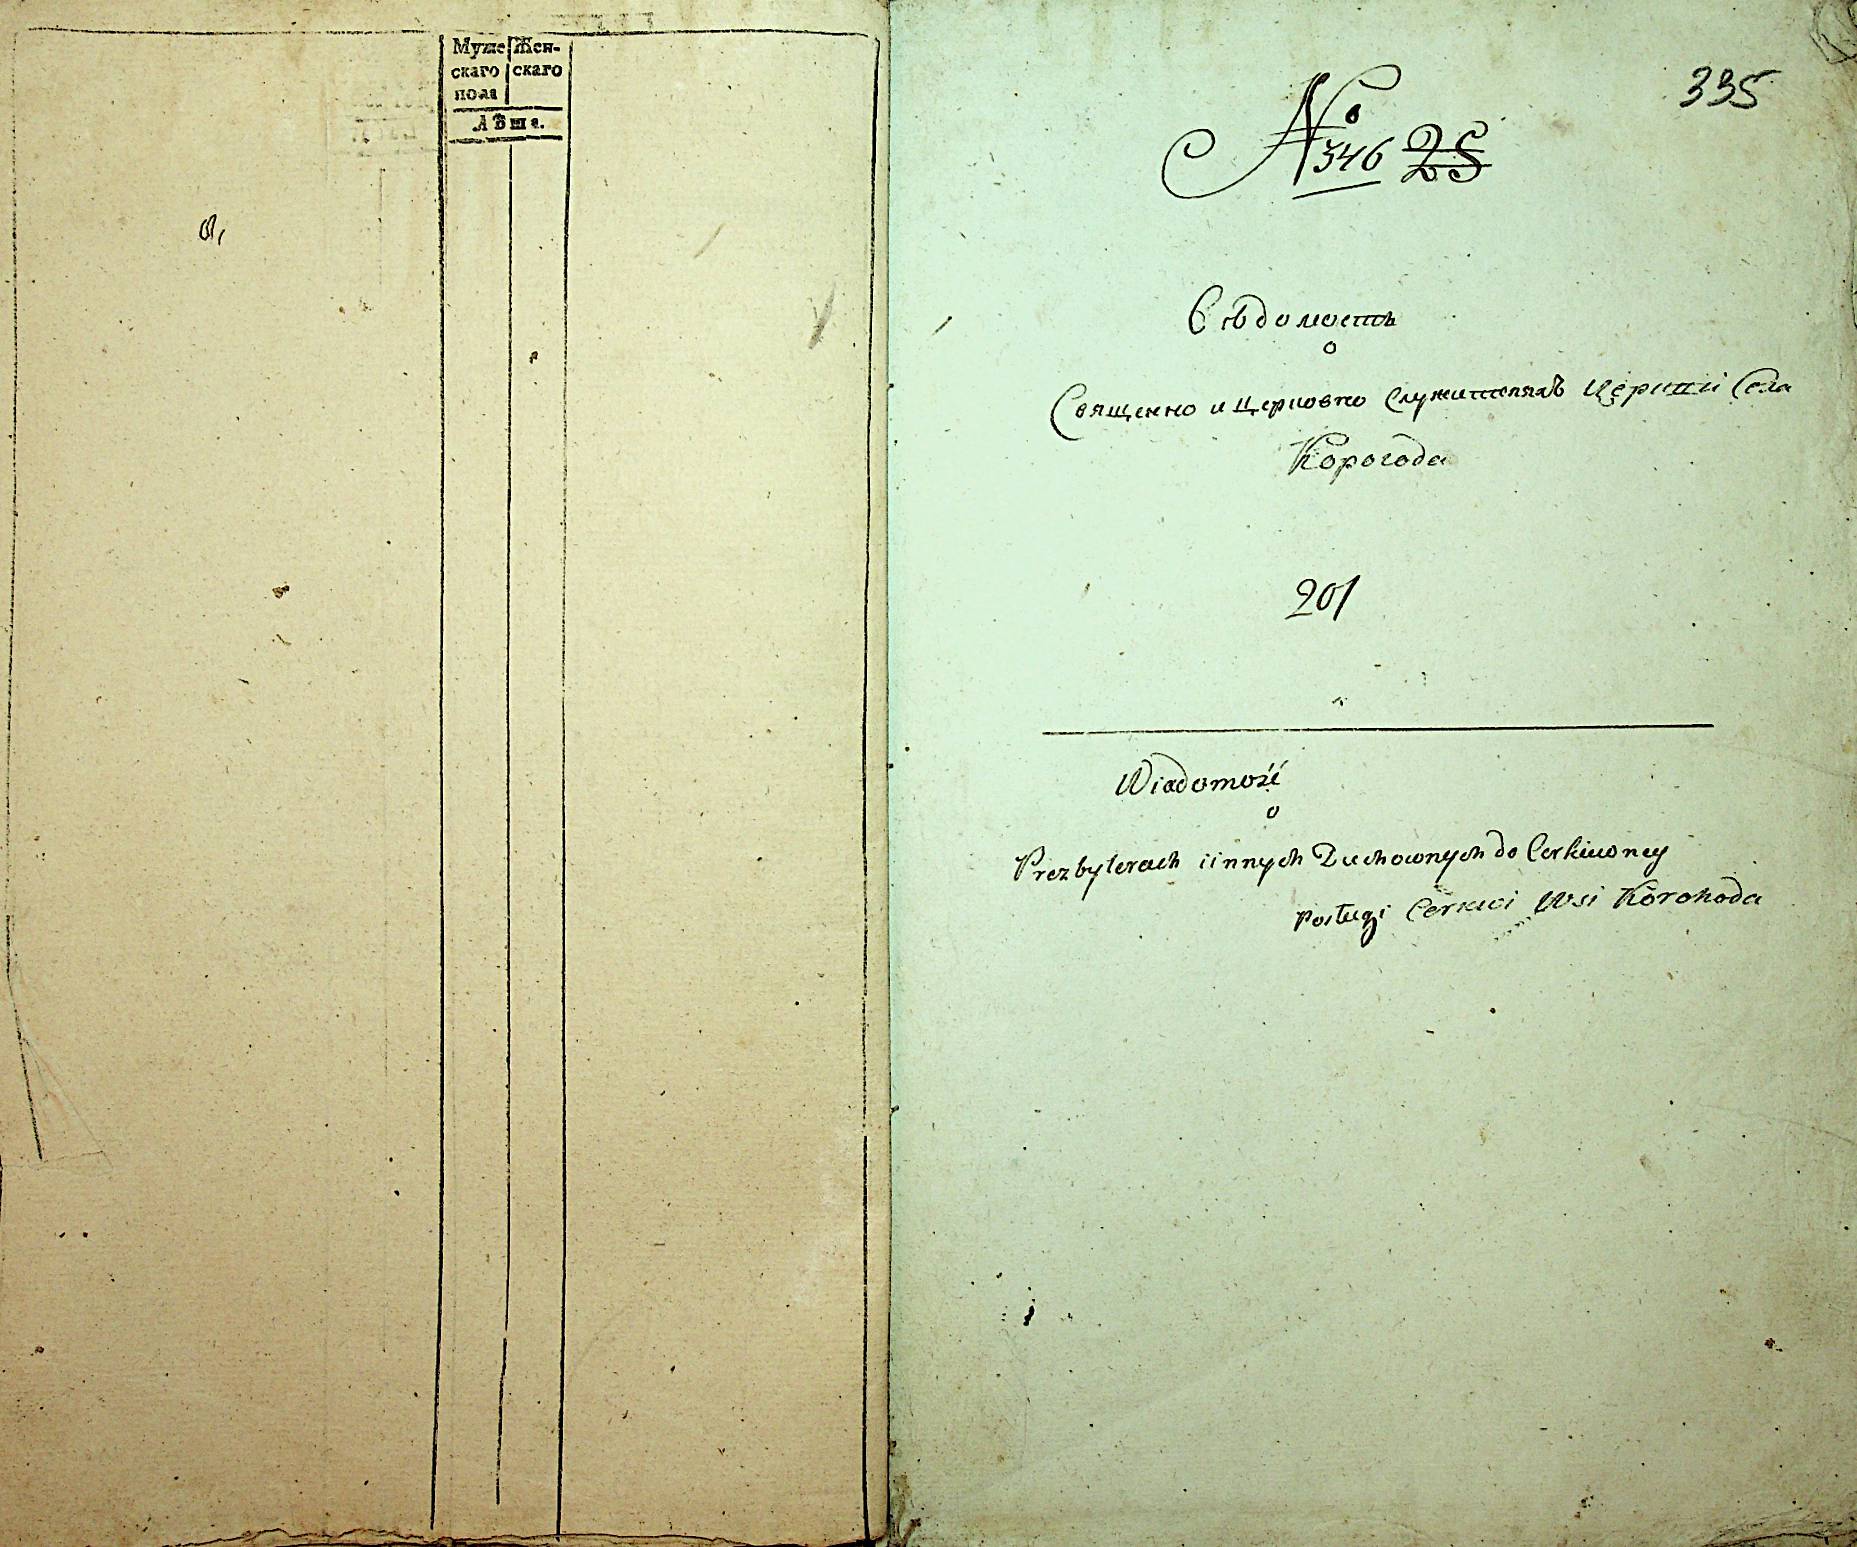 Муже Жен-
скаго скаго
пола
Лѣта.
335
№ 346 25
Вѣдомость
о
Священно и церковно служителяхъ церкви Села
Корогода
201
Wiadomość
o
Prezbyterach i innych Duchownych do Cerkiewney
posługi Cerkwi Wsi Korohoda